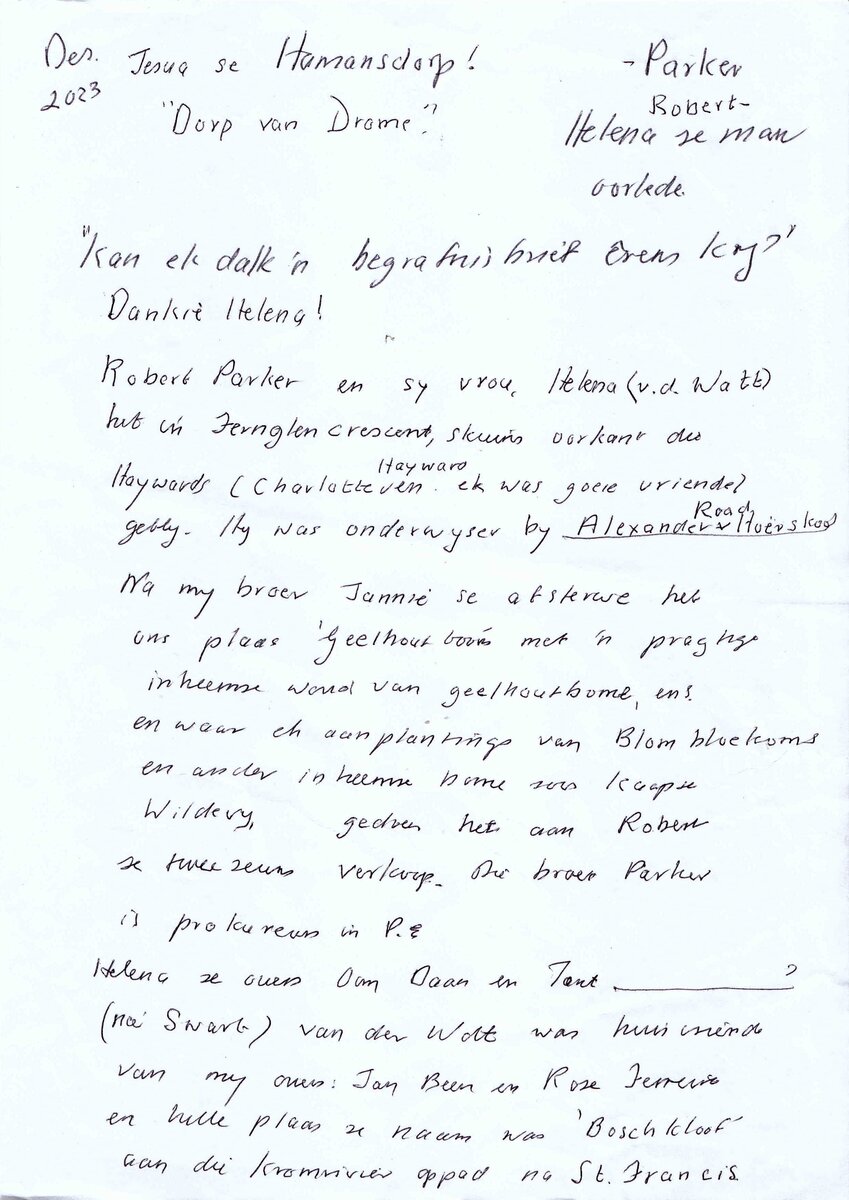 Des. 2023
Jesua se Humansdorp!
"Dorp van Drome".
- Parker
Robert -
Helena se man
oorlede.
"Kan ek dalk 'n begrafnisbrief êrens kry?"
Dankie Helena!
Robert Parker en sy vrou, Helena (v.d. Watt)
het in Fernglen crescent, skuins oorkant die
Hayward
Haywards (Charlotte en ek was goeie vriende)
gebly. Hy was onderwyser by Alexander Hoërskool
Road
Na my broer Jannie se afsterwe het
ons plaas 'Geelhoutboom met 'n pragtige
inheemse woud van geelhoutbome, ens
en waar ek aanplantings van Blombloekoms
en ander inheemse bome soos Kaapse
Wildevy, gedoen het aan Robert
se twee seuns verkoop. Die broer Parker
is prokureurs in P.E
Helena se ouers Oom Daan en Tant ________?
(neé Swart) van der Watt was huisvriende
van my ouers: Jan Been en Rose Ferreira
en hulle plaas se naam was 'Boschkloof'
aan die Kromrivier oppad na St. Francis.